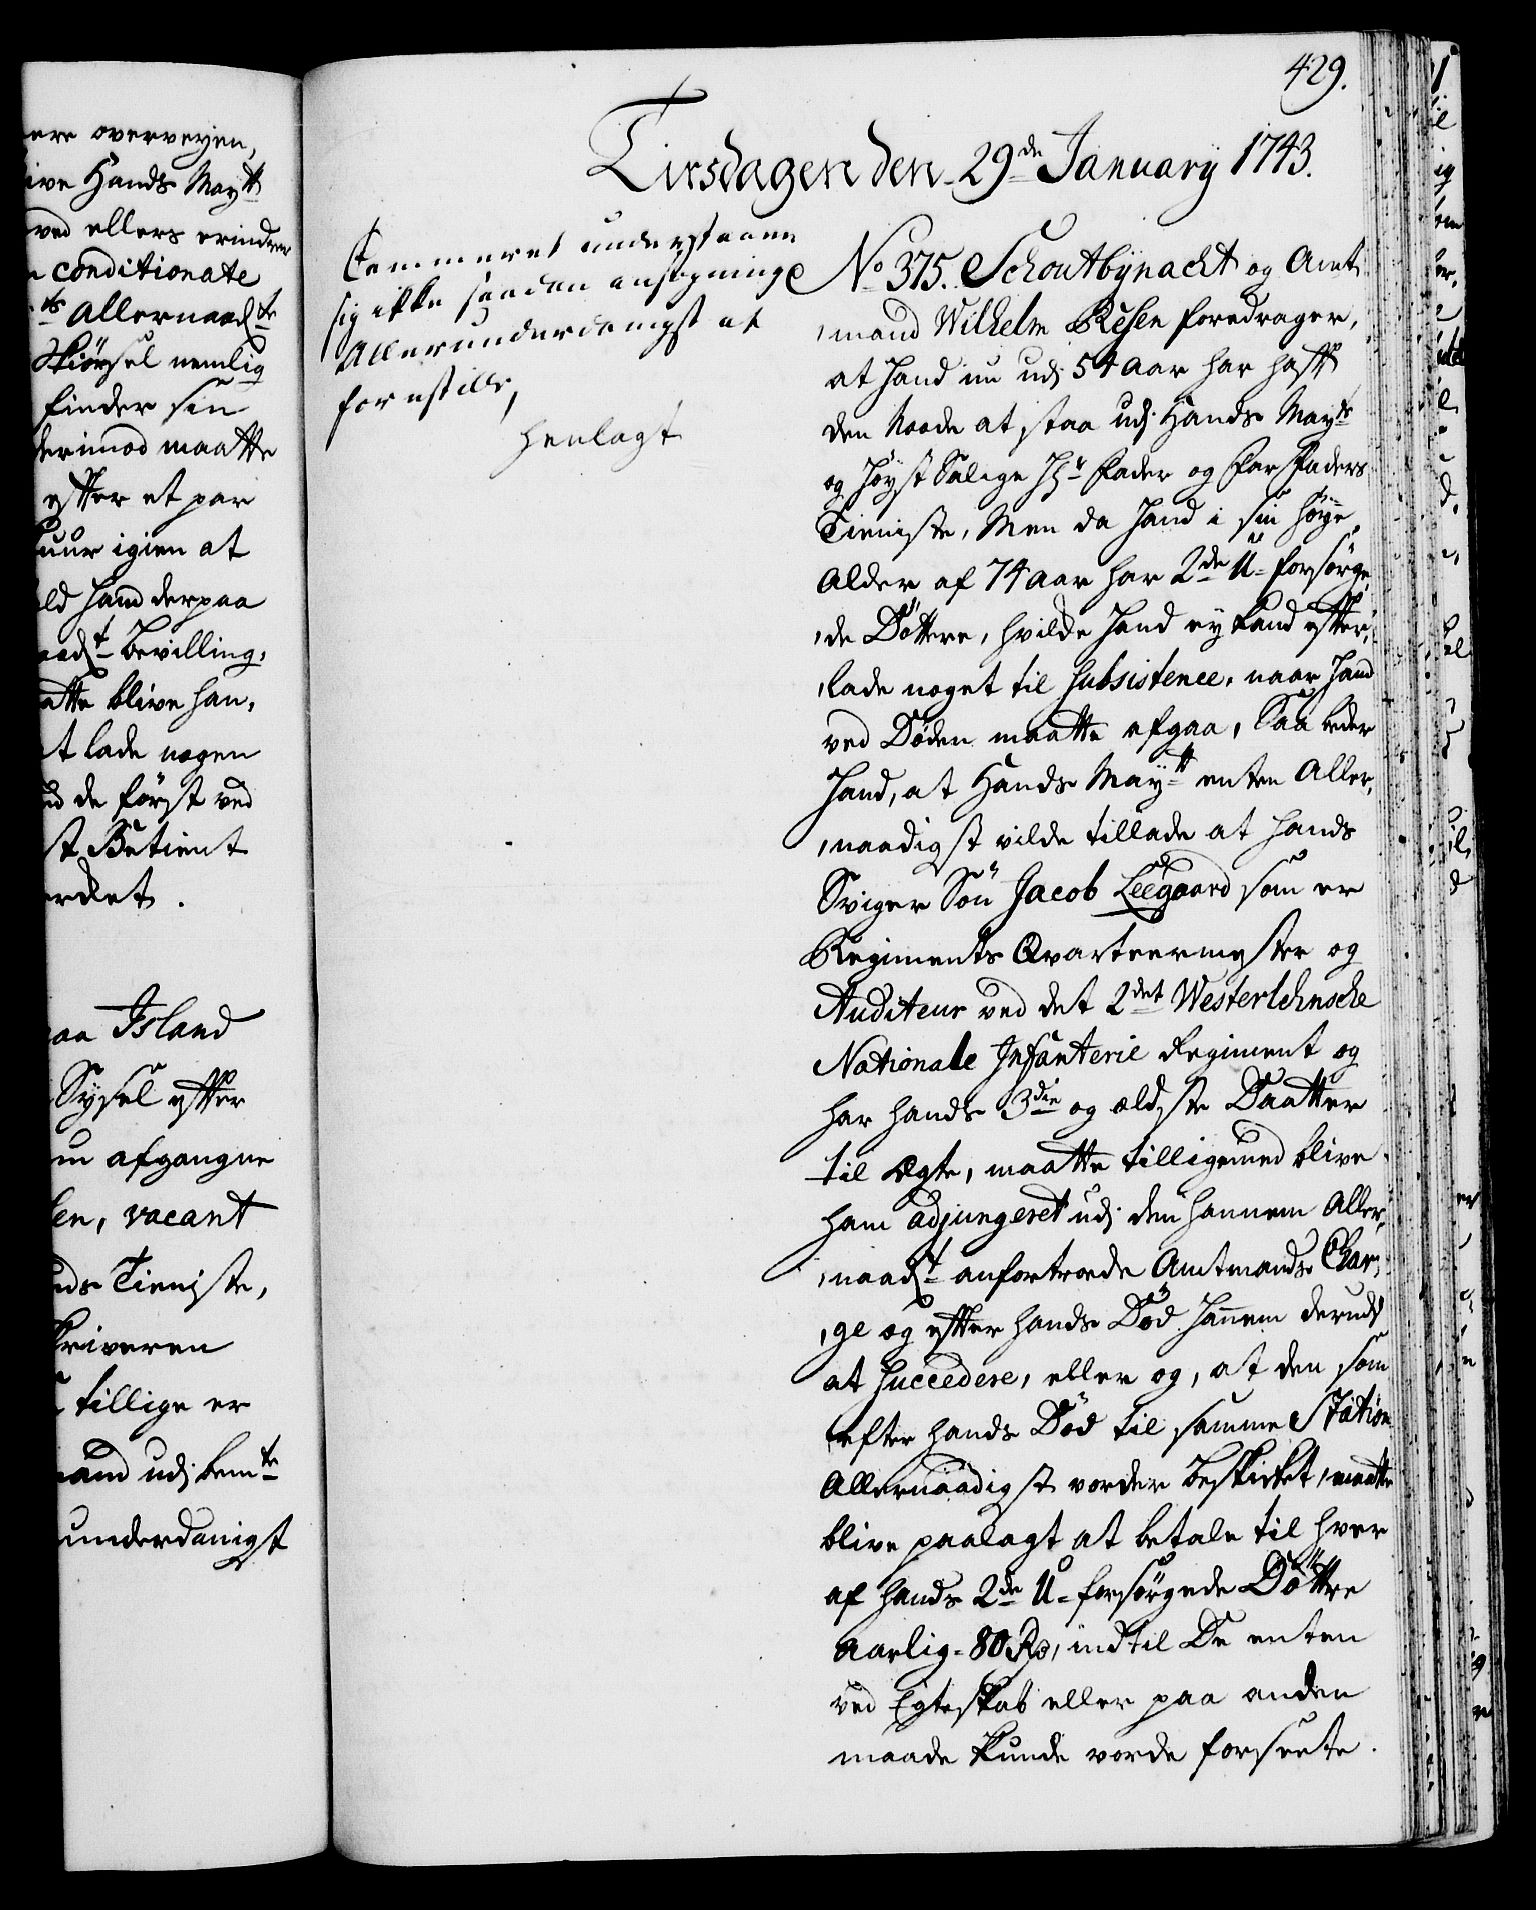 ere overveyen,
ive Hands Maytt
ved ellers erindrer
conditionate
ts Allernaadte
Skiörsel nemlig
finder sin
derimod maatte
efter et par
uur igien at
ld hand derpaa
aadt Bevilling,
atte blive han,
t lade nogen
de först ved
st Betient
erdet.
aa Island
Sysel efter
afgangne
en, vacant
ds Tieniste,
kriveren
tillige er
and udj bemte
underdanigst
429.
Tirsdagen den 29de January 1743.
Cammeret understaaer
sig ikke saadan ansögning
Allerunderdanigst at
forestille,
henlagt
No 375. Schoutbynacht og Amt,
,mand Wilhelm Resen foredrager,
at hand nu udj 54 Aar har hafft
den Naade at staa udj Hands Mayts
og Höyst Salige Hr Fader og FarFaders
Tieniste, Men da hand i sin höye
Alder af 74 Aar har 2de U-forsörge,
,de Döttre, hvilke hand ey kand efter,
,lade noget til Subsistence, naar hand
ved Döden maatte afgaa, Saa beder
hand, at Hands Maytt enten Aller,
,naadigst vilde tillade at hands
Sviger Sön Jacob Leegaard som er
Regiments Qvarteermester og
Auditeur ved det 2det Westerlehnsche
Nationale Infanterie Regiment og
har hands 3die og ældste Daatter
til Ægte, maatte tilligemed blive
ham adjungeret udj den hannem Aller,
,naadt anfortroede Amtmands Char,
,ge og efter hands Död hannem derudj
at Succedere, eller og, at den som
efter hands Död til samme Station
Allernaadigst vorder beskicket, maatte
blive paalagt at betale til hver
af hands 2de U-forsörgede Döttre
Aarlig 80 Rd, indtil De enten
ved Egteskab eller paa anden
maade kunde vorde forseete.